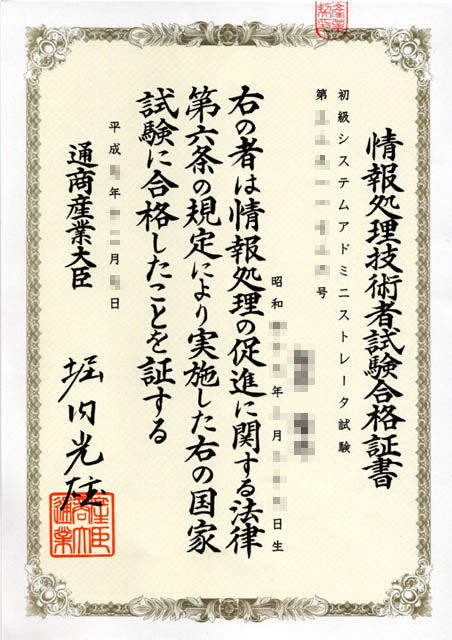 情報処理技術者試験合格証書
初級システムアドミニストレータ試験
第 号
昭和 年 月 日生
右の者は情報処理の促進に関する法律
第六条の規定により実施した右の国家
試験に合格したことを証する
平成 年 月 日
通商産業大臣
堀内光雄